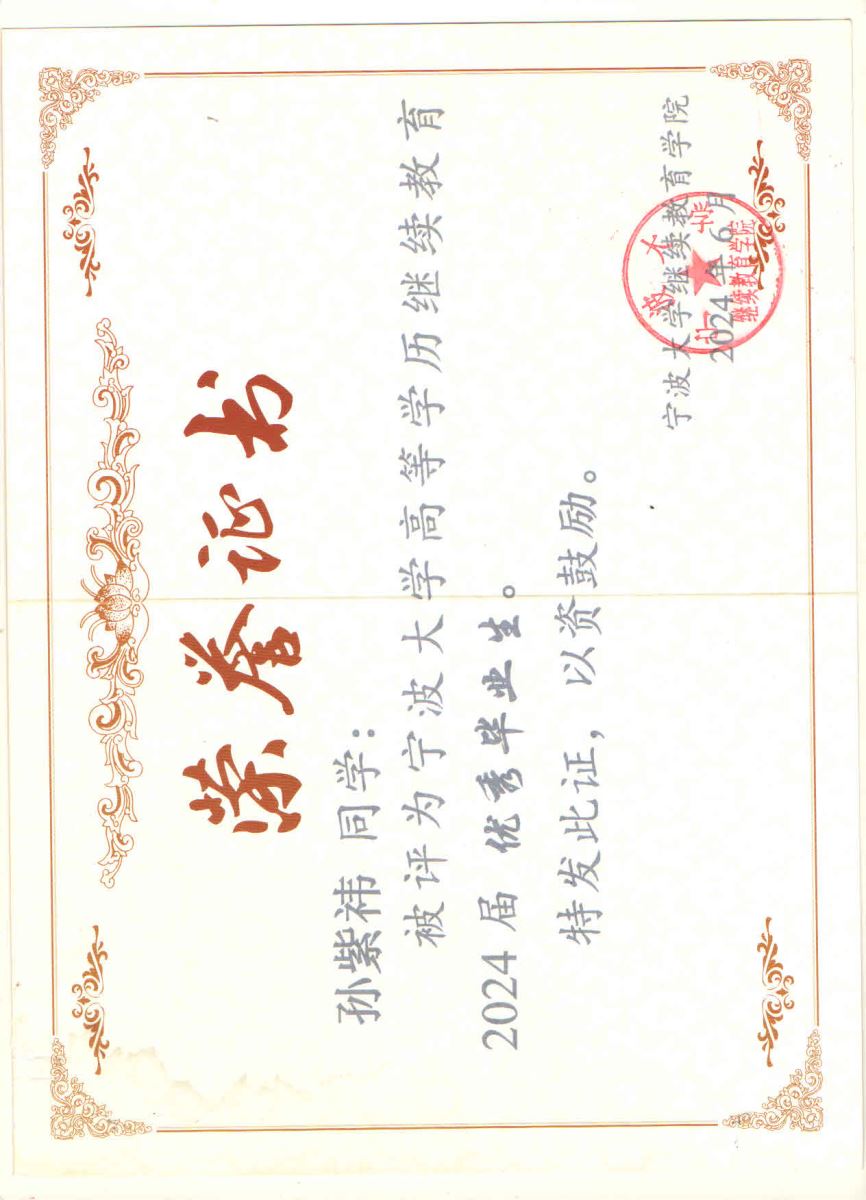 荣誉证书
孙紫祎 同学：
被评为宁波大学高等学历继续教育
2024 届 优秀毕业生。
特发此证，以资鼓励。
宁波大学继续教育学院
2024 年 6 月
宁波大学
继续教育学院